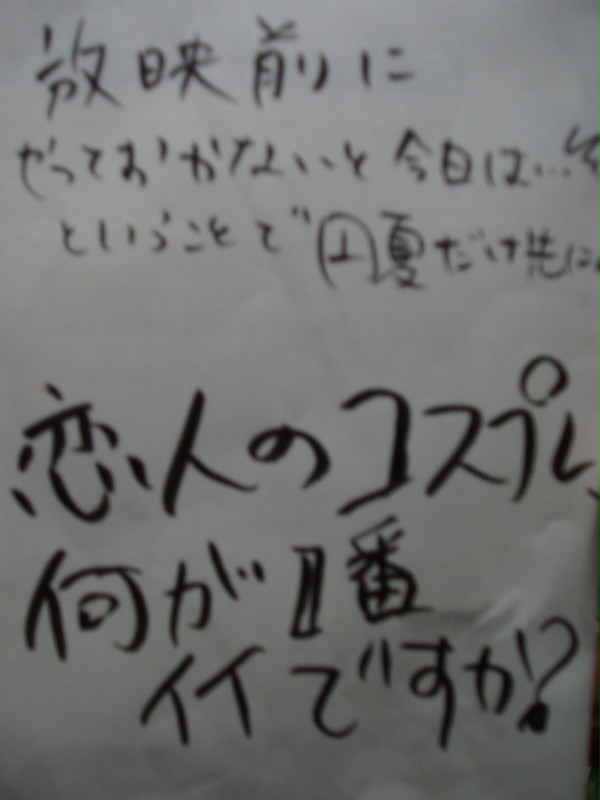 放映前に
やっておかないと 今日は…
ということで 円夏だけ先に
恋人のコスプレ、
何が1番
イイですか?